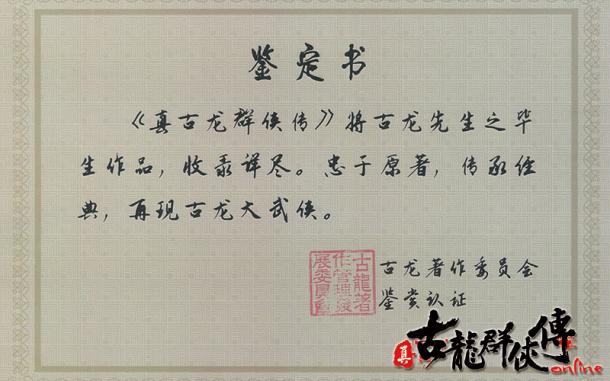 鉴定书
《真古龙群侠传》将古龙先生之毕
生作品，收录详尽。忠于原著，传承经
典，再现古龙大武侠。
古龍著
作管理發
展委員會
古龙著作委员会
鉴赏认证
真古龍群俠傳
online